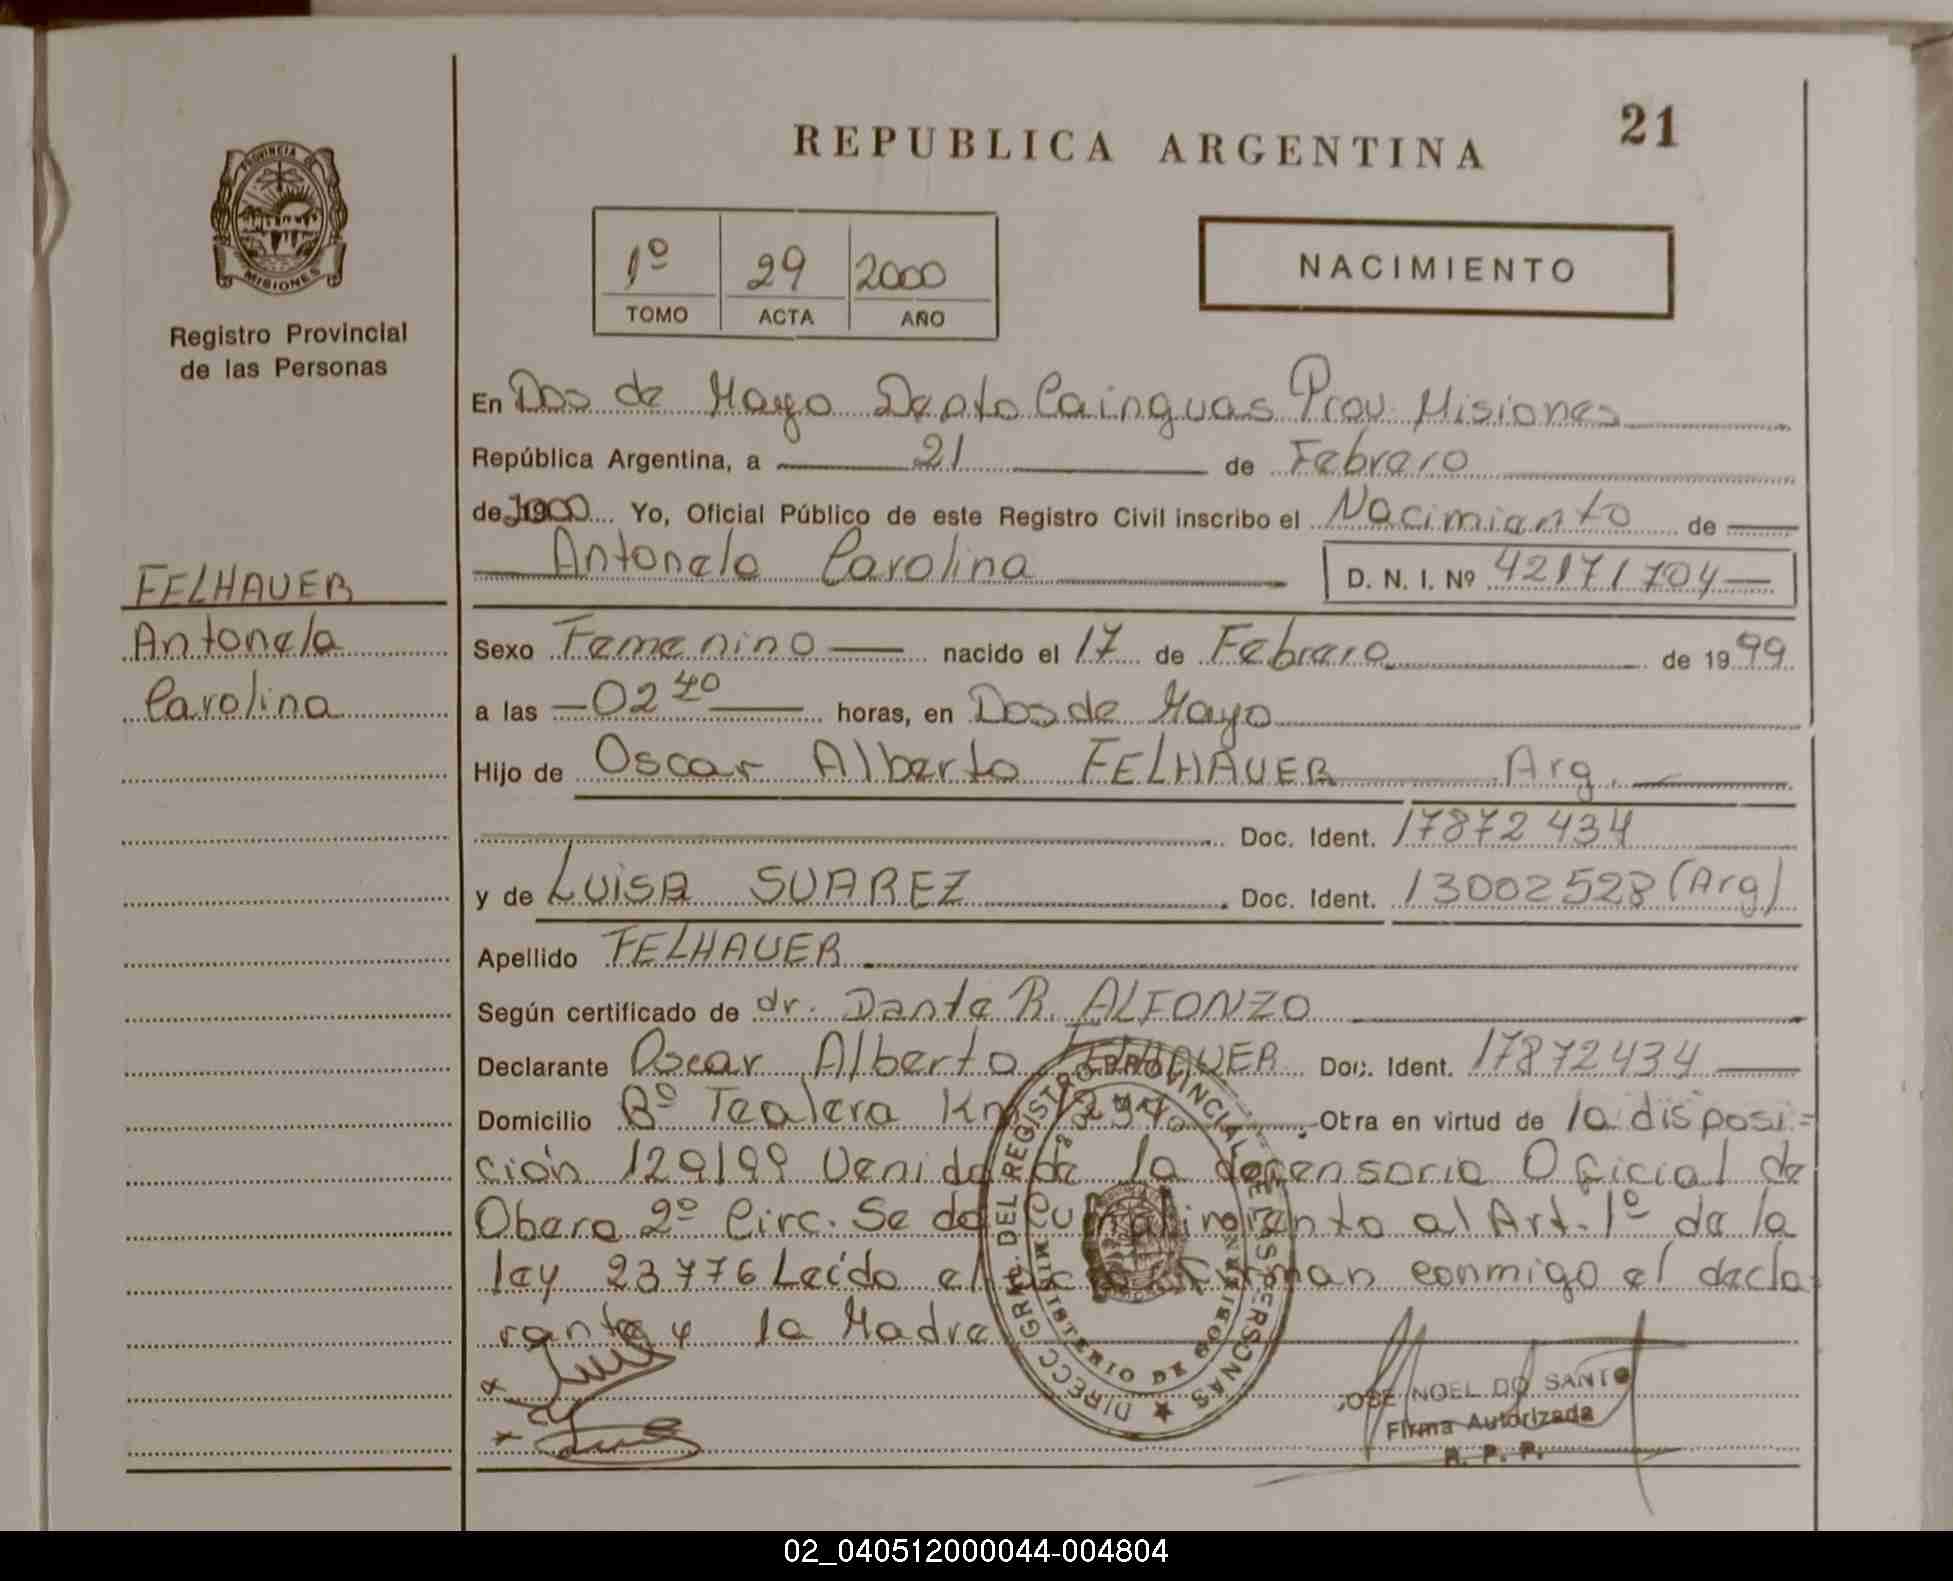 REPUBLICA ARGENTINA
21
PROVINCIA DE
MISIONES
Registro Provincial
de las Personas
1º 29 2000
TOMO ACTA AÑO
NACIMIENTO
En Dos de Mayo Depto Cainguas Prov. Misiones
República Argentina, a 21 de Febrero
de 2000 Yo, Oficial Público de este Registro Civil inscribo el Nacimiento de
Antonela Carolina D. N. I. Nº 42171704
FELHAUER
Antonela
Carolina
Sexo Femenino nacido el 17 de Febrero de 1999
a las 02 40 horas, en Dos de Mayo
Hijo de Oscar Alberto FELHAUER Arg.
Doc. Ident. 17872434
y de LUISA SUAREZ Doc. Ident. 13002528 (Arg)
Apellido FELHAUER
Según certificado de dr. Dante R. ALFONZO
Declarante Oscar Alberto FELHAUER Doc. Ident. 17872434
Domicilio Bº Tealera Km Otra en virtud de la disposi-
ción 129/99 Venida de la defensoria Oficial de
Obera 2º Circ. Se da cumplimiento al Art. 1º de la
ley 23776 Leído el acta firman conmigo el decla
rante y la Madre
DIRECC GRAL. DEL REGISTRO PROVINCIAL DE LAS PERSONAS
MINISTERIO DE GOBIERNO
JOSE NOEL DO SANTO
Firma Autorizada
R. P. P.
02_040512000044-004804